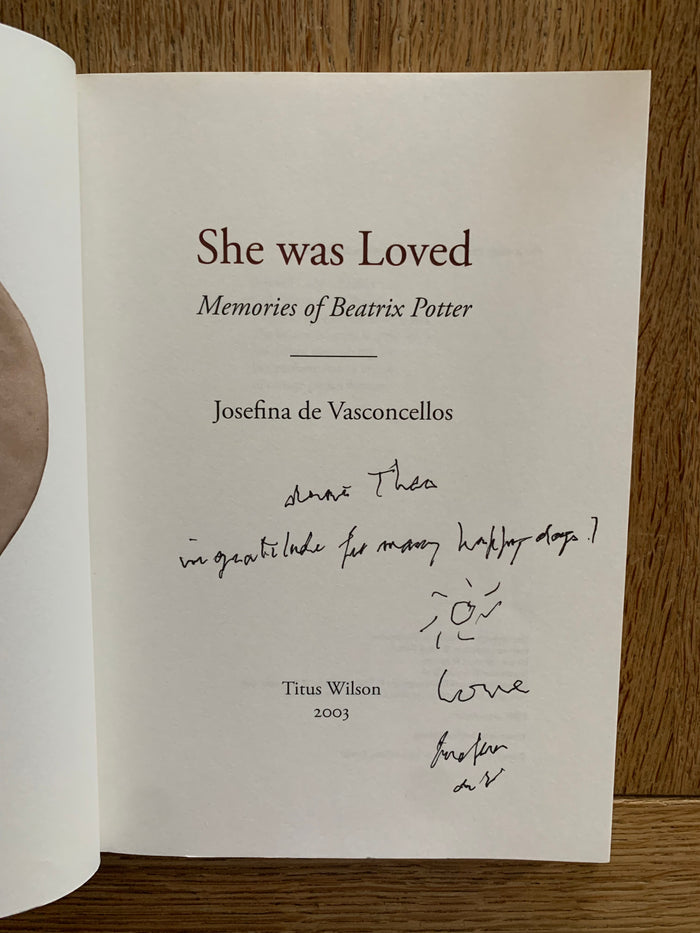 She was Loved
Memories of Beatrix Potter
Josefina de Vasconcellos
Theo
in gratitude for many happy days!
Love
Josefina
de V
Titus Wilson
2003